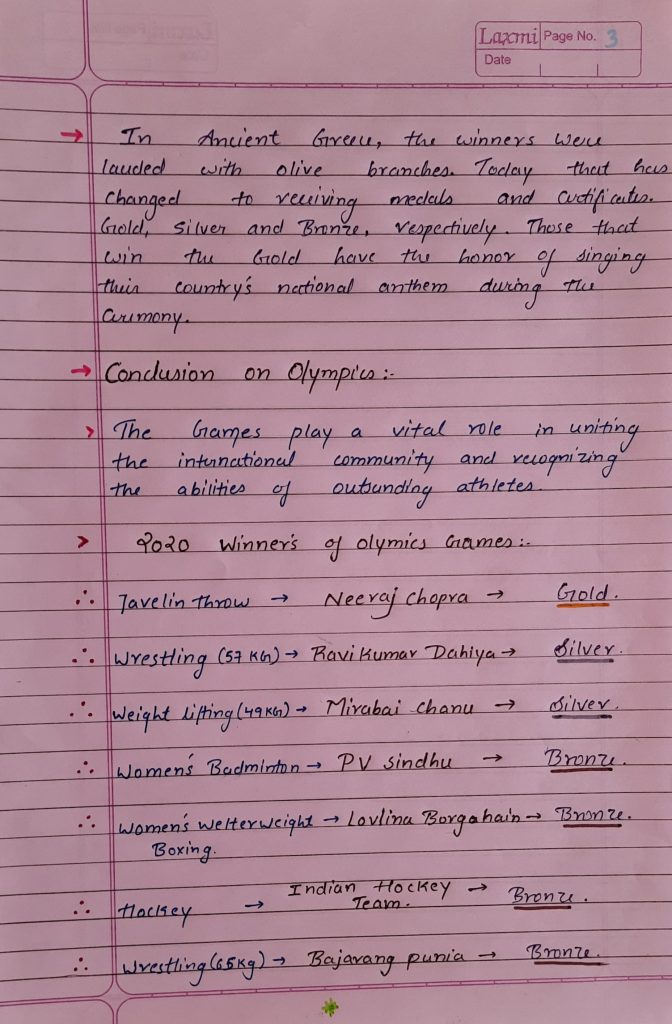 Laxmi Page No. 3
Date
→ In Ancient Greece, the winners were
lauded with olive branches. Today that has
changed to receiving medals and certificates.
Gold, Silver and Bronze, respectively. Those that
win the Gold have the honor of singing
their country's national anthem during the
ceremony.
→ Conclusion on Olympics:-
> The Games play a vital role in uniting
the international community and recognizing
the abilities of outsunding athletes.
> 2020 Winner's of olymics Games:-
∴ Javelin throw → Neeraj Chopra → Gold.
∴ Wrestling (57 KG) → Ravi Kumar Dahiya → Silver.
∴ Weight lifting (49 KG) → Mirabai chanu → Silver.
∴ Women's Badminton → PV sindhu → Bronze.
∴ Women's Welterweight → Lovlina Borgahain → Bronze.
Boxing.
∴ Hockey → Indian Hockey → Bronze.
Team.
∴ Wrestling (65 Kg) → Bajarang punia → Bronze.